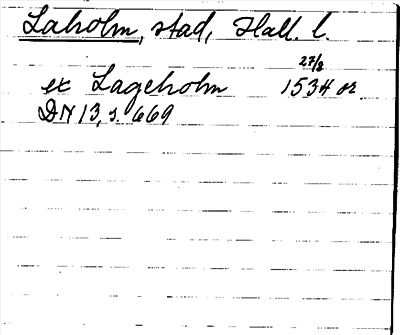 Laholm, stad, Hall. l.
27/8
ex Lageholm 1534 or
DN 13, s. 669